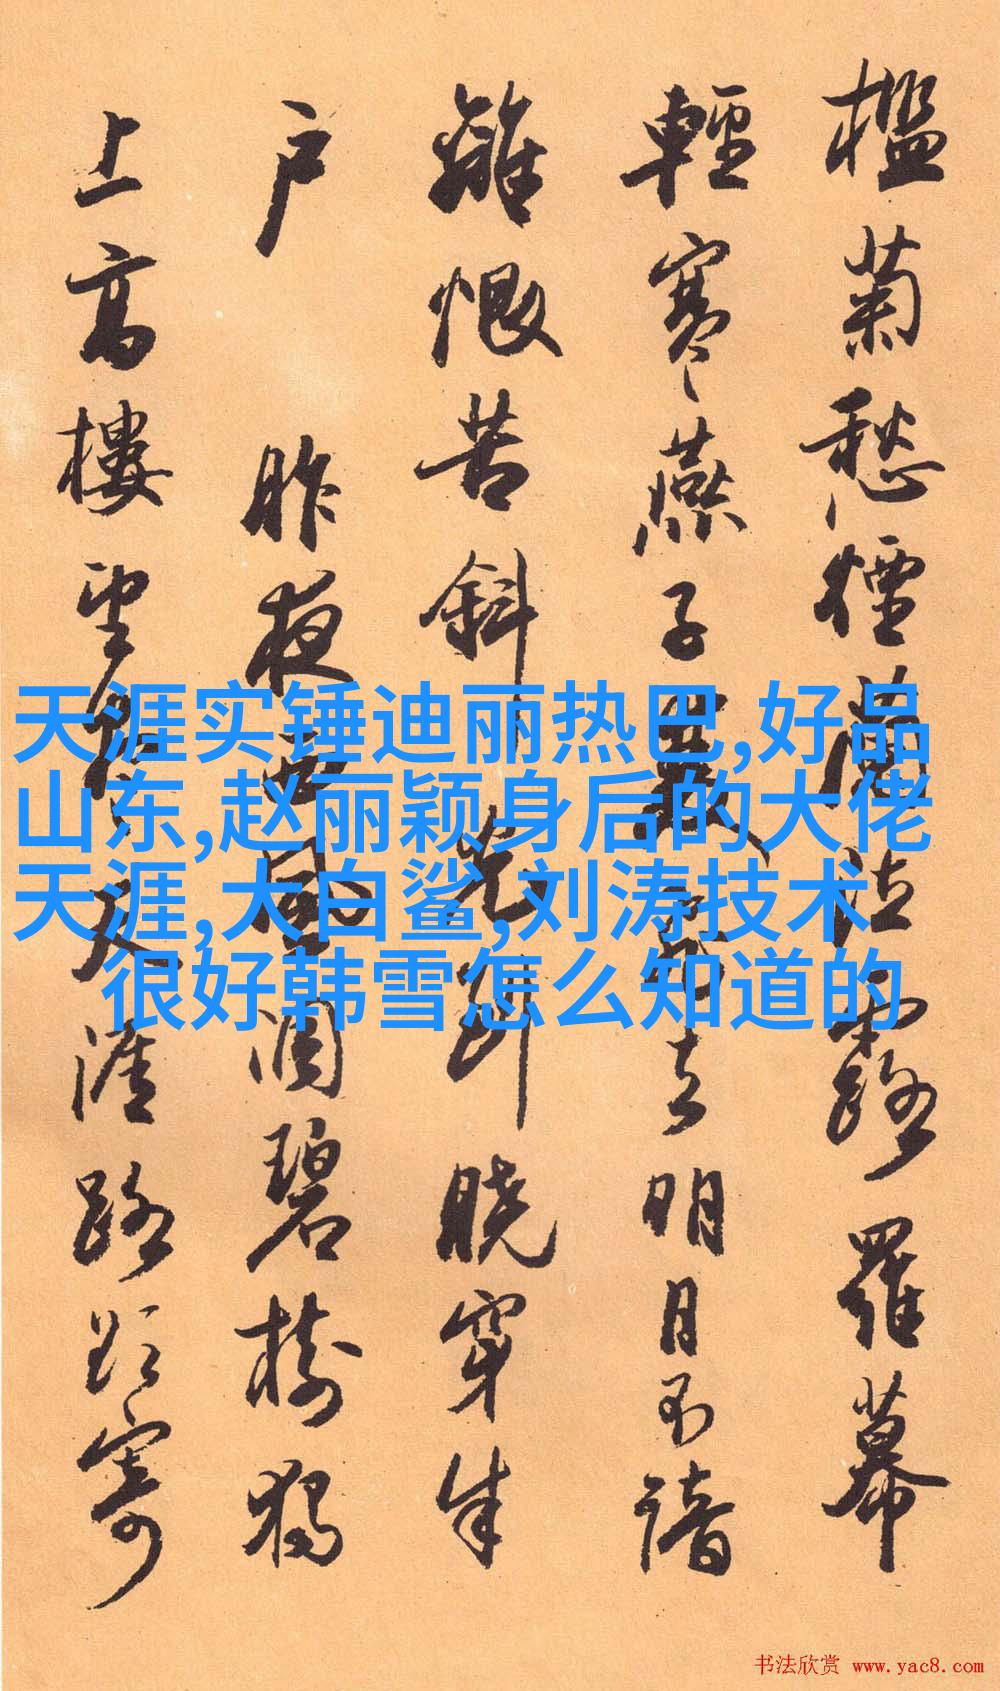 檻菊愁煙蘭泣露羅幕
輕寒燕子雙飛去明月不諳
離恨苦斜光到曉穿朱
户 昨夜西風凋碧樹獨
上高樓望盡天涯路欲寄
天涯实锤迪丽热巴,好品
山东,赵丽颖身后的大佬
天涯,大白鲨,刘涛技术
很好韩雪怎么知道的
书法欣赏 www.yac8.com